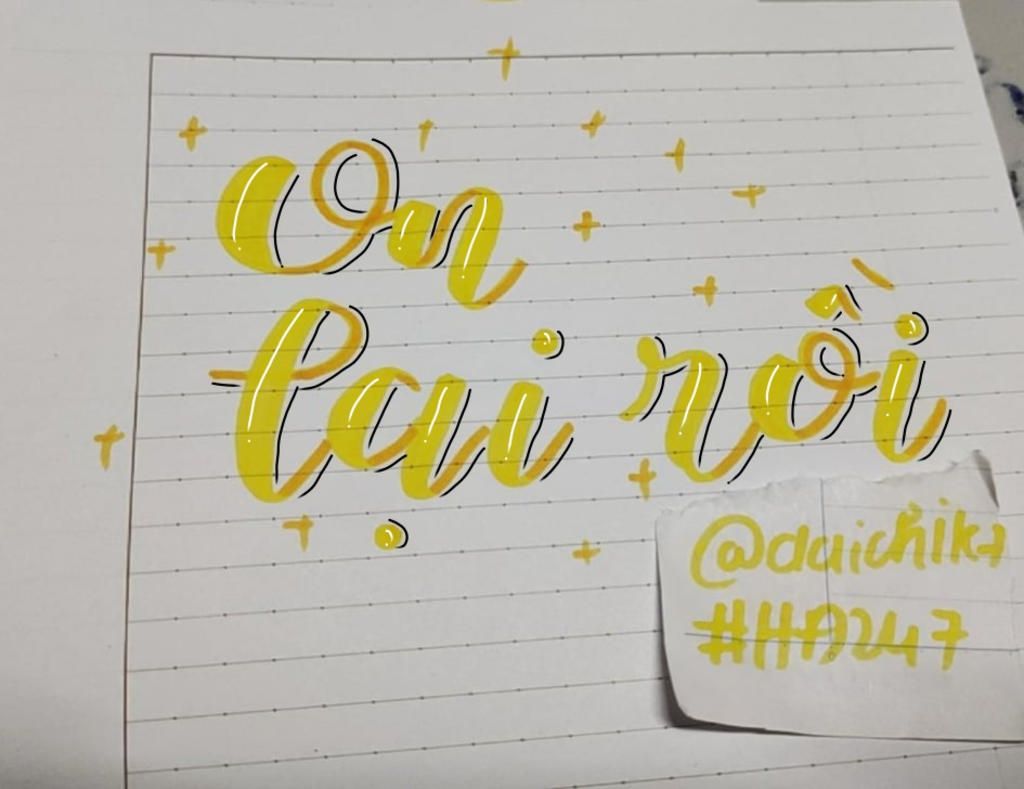 On
lại rồi
@daichika
#HA247